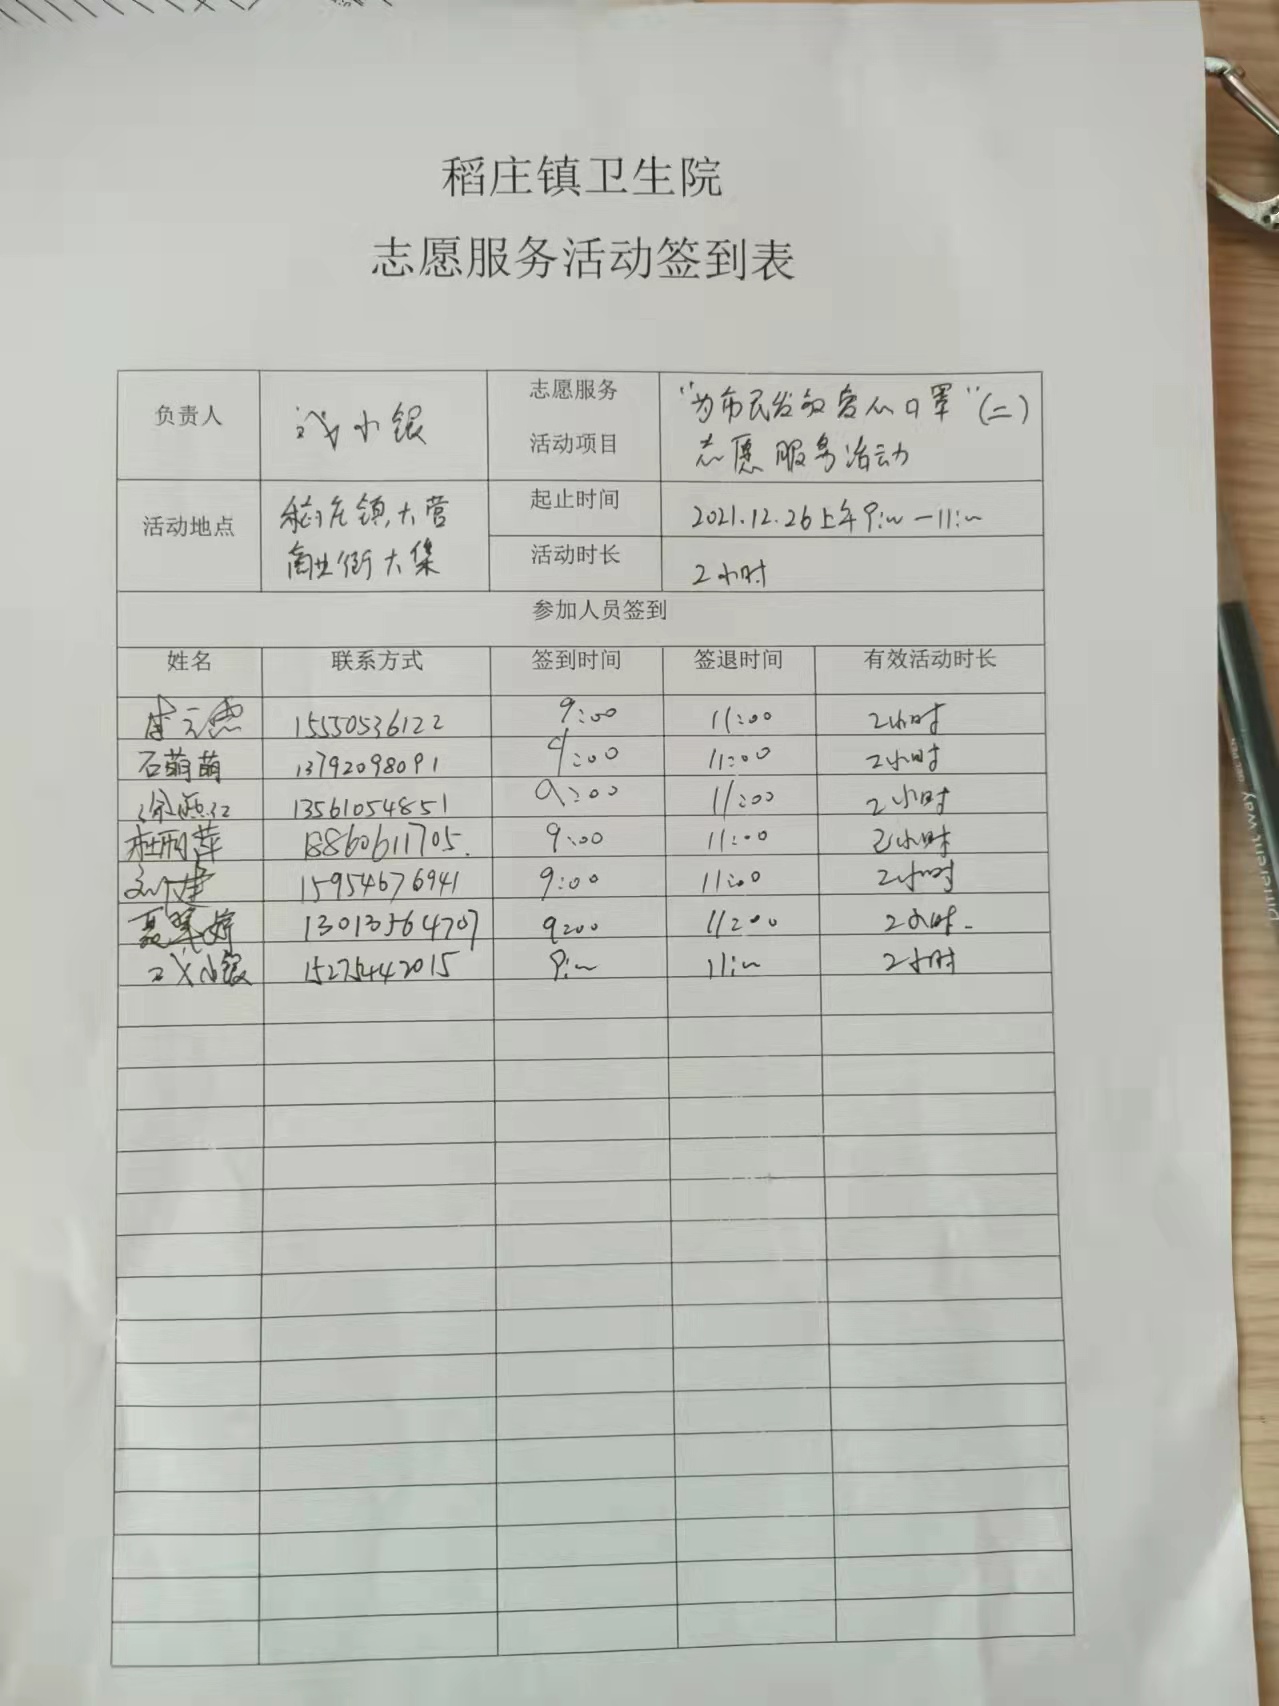 稻庄镇卫生院
志愿服务活动签到表
负责人 小银 志愿服务 活动项目 “为市民发放爱心口罩”(二)
志愿服务活动
活动地点 稻庄镇大营
商业街大集
起止时间 2021.12.26上午9:00-11:00
活动时长 2小时
参加人员签到
姓名 联系方式 签到时间 签退时间 有效活动时长
15550536122 9:00 11:00 2小时
石萌萌 13792098091 9:00 11:00 2小时
徐燕红 13561054851 9:00 11:00 2小时
杜丽萍 18860611705. 9:00 11:00 2小时
刘建 15954676941 9:00 11:00 2小时
聂翠婷 13013564707 9:00 11:00 2小时.
小银 15275442015 9:00 11:00 2小时
Different way